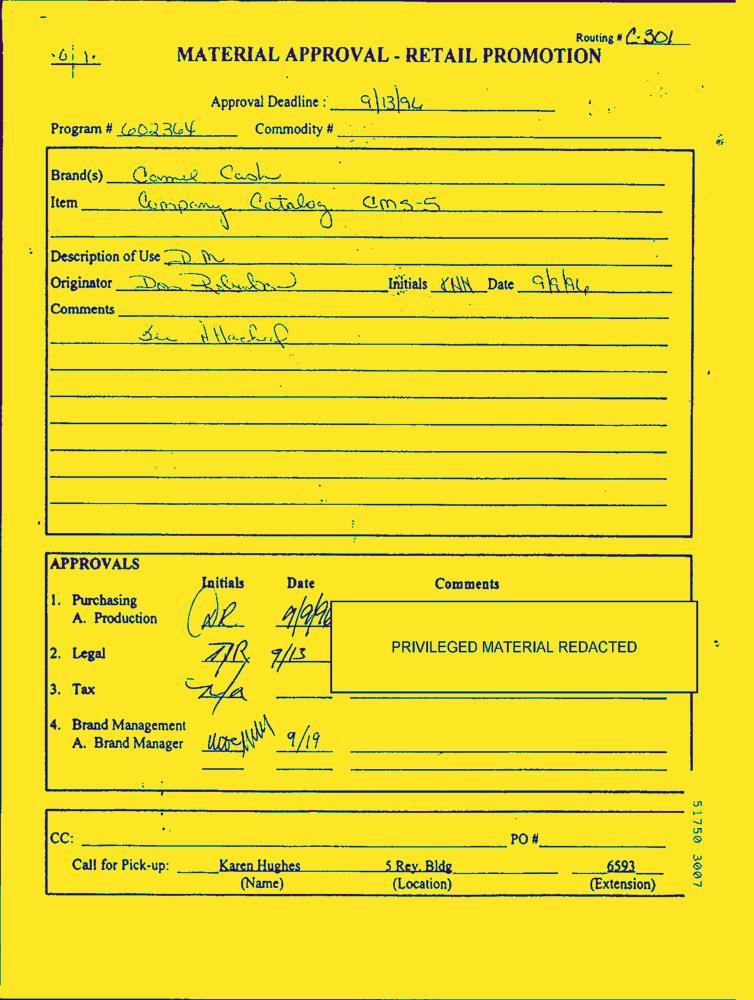 Routing # C-301
MATERIAL APPROVAL - RETAIL PROMOTION
Approval Deadline : 9/13/96
Program # 602364 Commodity #
Brand(s) Camel Cash
Item Company Catalog CMS-5
Description of Use D M
Originator Don Initials Date 9/9/96
Comments
See Attached
APPROVALS
Initials Date Comments
1. Purchasing
A. Production 9/9/96
PRIVILEGED MATERIAL REDACTED
2. Legal 9/13
3. Tax n/a
4. Brand Management
A. Brand Manager 9/19
CC: PO #
Call for Pick-up: Karen Hughes 5 Rey. Bldg 6593
(Name) (Location) (Extension)
51750 3007